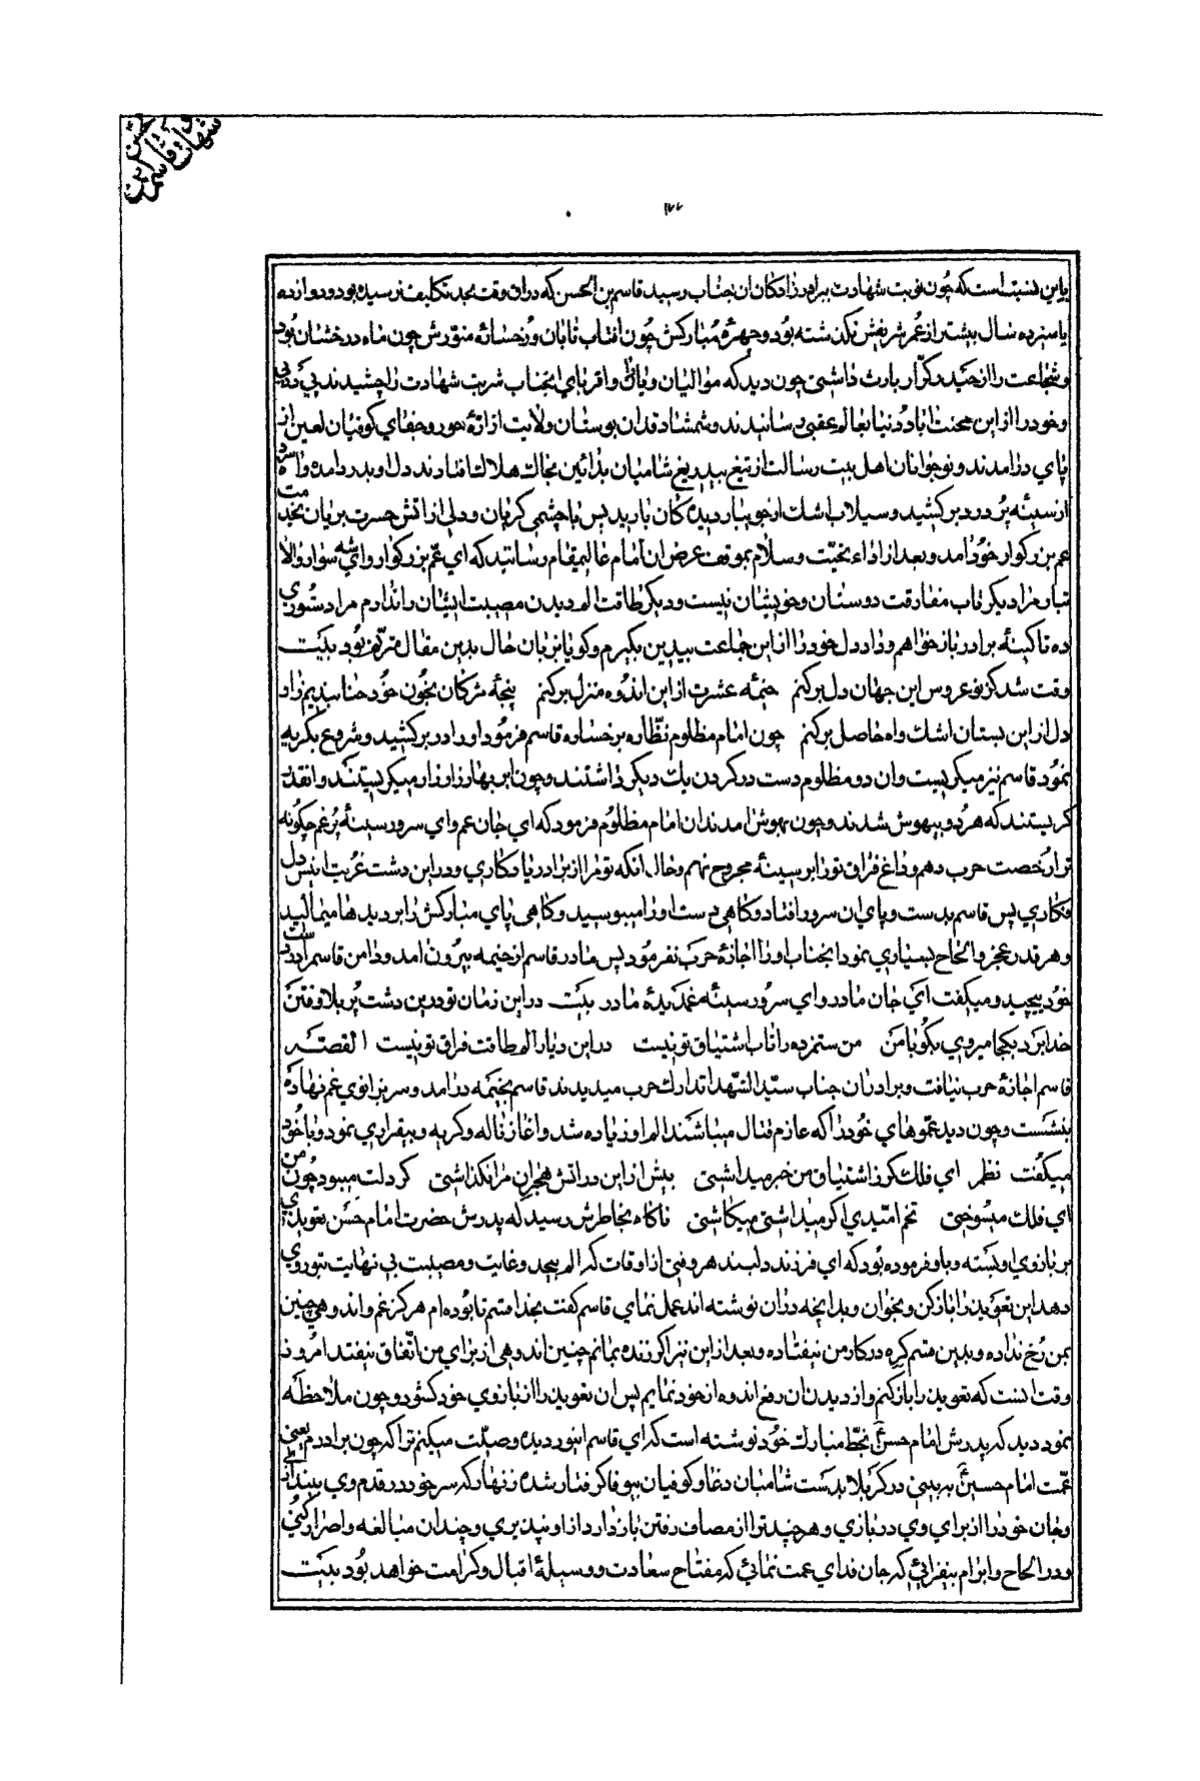 شهادت قاسم ابن حسن
۱۷۷
باین نسبت است که چون نوبت شهادت ببرادرزادکان ان جناب رسید قاسم بن الحسن که دران وقت بحد تکلیف نرسیده بود و دوازده
یا سیزده سال بیشتر از عمر شریفش نکذشته بود و چهرهٔ مبارکش چون افتاب تابان و رخسارهٔ منورش چون ماه درخشان بود
و شجاعت را از حیدر کرّار بارث داشتی چون دید که موالیان و یاران و اقربای انجناب شربت شهادت را چشیدند پی در پی
و خود را از این محنت اباد دنیا بعالم عقبی رسانیدند و شمشاد قدان بوستان ولایت از ارّهٔ جور و جفای کوفیان لعین از
پای درامدند و نوجوانان اهل بیت رسالت از تیغ بیدریغ شامیان بدائین بخاک هلاک افتادند دل او بدرد امده و اه سرد
از سینهٔ پر درد برکشید و سیلاب اشک از جویبار دیده کان بارید پس با چشمی کریان و دلی از اتش حسرت بریان بخدمت
عم بزرکوار خود امد و بعد از اداء تحیّت و سلام بموقف عرض ان امام عالیمقام رسانید که ای عمّ بزرکوار و ای شه سوار والا
تبار مرا دیکر تاب مفارقت دوستان و خویشان نیست و دیکر طاقت الم دیدن مصیبت ایشان را ندارم مرا دستوری
ده تا کینهٔ برادر باز خواهم و داد دل خود را از این جماعت بیدین بکیرم و کویا بزبان حال بدین مقال مترنّم بود بیت
وقت شد کز نو عروس این جهان دل برکنم خیمه عشرت از این اندوه منزل برکنم پنجهٔ مژکان بخون خود حنا بندیم زار
دل از این بستان اشک و اه حاصل برکنم چون امام مظلوم نظّاره بر خساره قاسم فرمود او را در بر کشید و شروع بکریه
نمود قاسم نیز میکریست و ان دو مظلوم دست در کردن یک دیکر داشتند و چون ابر بهار زار زار میکریستند و انقدر
کریستند که هر دو بیهوش شدند و چون بهوش امدند ان امام مظلوم فرمود که ای جان عم و ای سرور سینهٔ پر غم چکونه
ترا رخصت حرب دهم و داغ فراق تو را بر سینهٔ مجروح نهم و حال انکه تو مرا از برادر یادکاری و در این دشت غربت انیس دل
فکاری پس قاسم بدست و پای ان سرور افتاد و کاهی دست او را میبوسید و کاهی پای مبارکش را بر دیدها میمالید
و هر قدر عجز و الحاح بسیاری نمود انجناب او را اجازهٔ حرب نفرمود پس مادر قاسم از خیمه بیرون امد و دامن قاسم را بدست
خود پیچید و میکفت ای جان مادر و ای سرور سینهٔ غمدیدهٔ مادر بیت در این زمان تو درین دشت پر بلا و فتن
خدا نکرده بکجا میروی بکو با من من ستمزده را تاب اشتیاق تو نیست در این دیار الم طاقت فراق تو نیست القصّه
قاسم اجازهٔ حرب نیافت و برادران جناب سیّد الشّهدا تدارک حرب میدیدند قاسم بخیمه درامد و سر بزانوی غم نهاده
بنشست و چون دید عموهای خود را که عازم قتال میباشند الم او زیاده شد و اغاز ناله و کریه و بیقراری نمود و با خود
میکفت نظر ای فلک کر ز اشتیاق من خبر میداشتی بیش از این در اتش هجران مرا نکذاشتی کر دلت میبود چون من
ای فلک میسوختی تخم امّیدی اکر میداشتی میکاشتی ناکاه بخاطرش رسید که پدرش حضرت امام حسن تعویذی
بر بازوی او بسته و باو فرموده بود که ای فرزند دلبند هر وقتی از اوقات که الم بیحد و غایت و مصیبت بی نهایت بتو روی
دهد این تعویذ را باز کن و بخوان و بدانچه دران نوشته اند عمل نمای قاسم کفت بخدا قسم تا بوده ام هرکز غم و اندوهی چنین
بمن رخ نداده و بدین قسم کره در کار من نیفتاده و بعد از این نیز اکر زنده بمانم چنین اندوهی از برای من اتّفاق نیفتد امروز
وقت است که تعویذ را باز کنم و از دیدن ان رفع اندوه از خود نمایم پس ان تعویذ را از بازوی خود کشود و چون ملاحظه
نمود دید که پدرش امام حسن بخطّ مبارک خود نوشته است که ای قاسم ای نور دیده وصیّت میکنم ترا که چون برادرم یعنی
عمّت امام حسین را به بینی در کربلا بدست شامیان دغا و کوفیان بیوفا کرفتار شده زنهار که سر خود در قدم وی بیندازی
و جان خود را از برای وی در بازی و هرچند ترا از مصاف رفتن باز دارد از او نپذیری و چندان مبالغه و اصرار کنی
و در الحاح و ابرام بیفزائی که جان فدای عمت نمائی که مفتاح سعادت و وسیلهٔ اقبال و کرامت خواهد بود بیت